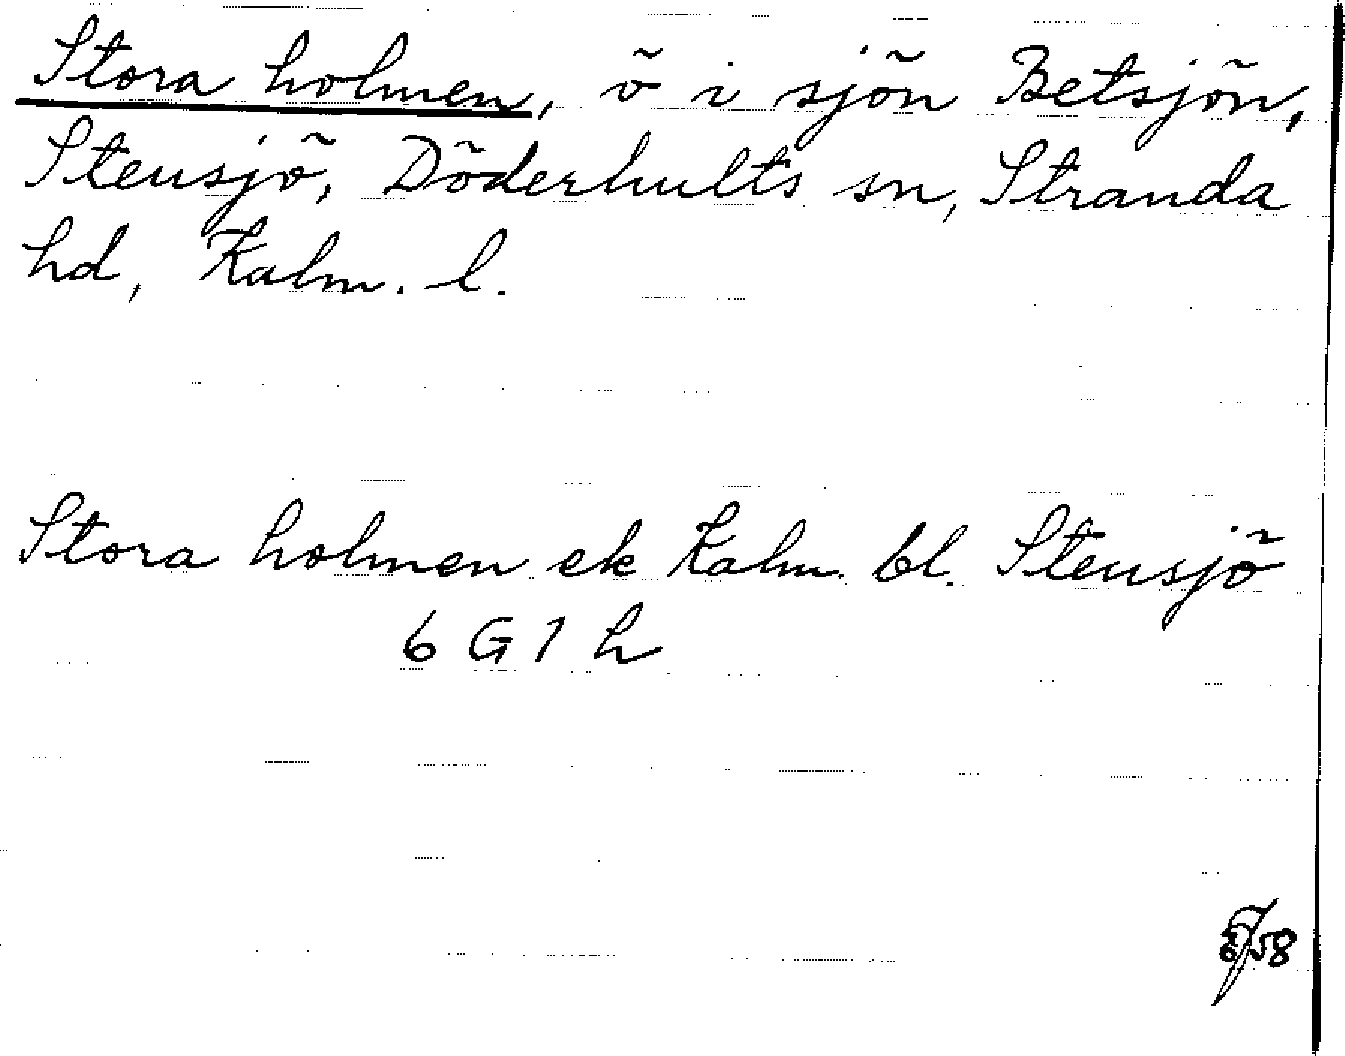 Stora holmen, ö i sjön Betsjön,
Stensjö, Döderhults sn, Stranda
hd, Kalm. l.
Stora holmen ek Kalm. bl. Stensjö
6 G 1 h
58